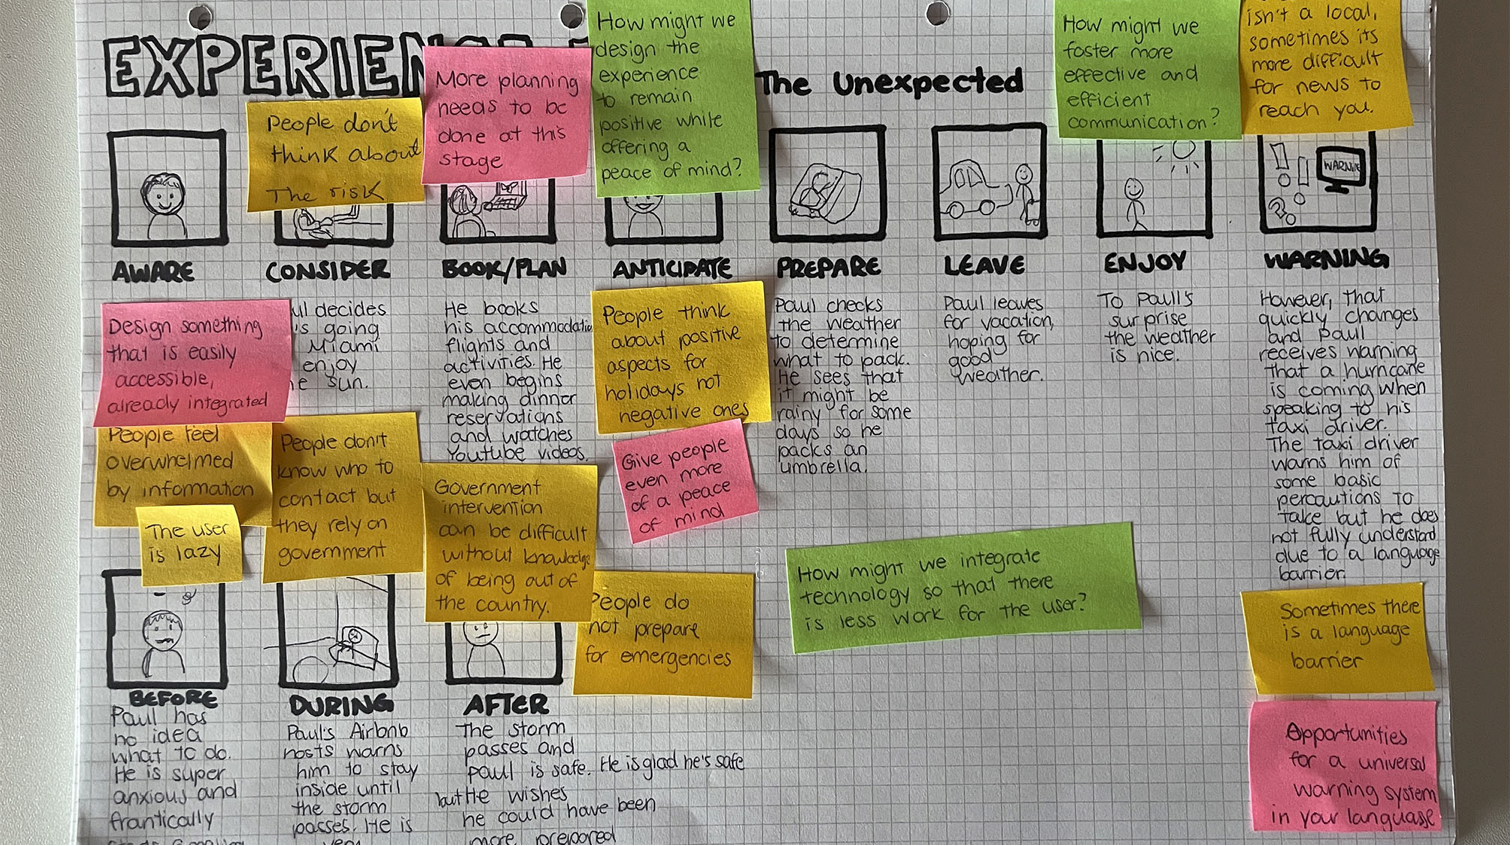 EXPERIEN
The Unexpected
People don't
think about
The risk
More planning
needs to be
done at this
stage
How might we
design the
experience
to remain
positive while
offering a
peace of mind?
How might we
foster more
effective and
efficient
communication?
isn't a local,
sometimes its
more difficult
for news to
reach you.
WARNING
AWARE
CONSIDER
BOOK/PLAN
ANTICIPATE
PREPARE
LEAVE
ENJOY
WARNING
Design something
that is easily
accessible,
already integrated
decides
going
Miami
enjoy
sun.
He books
his accommodation
flights and
activities. He
even begins
making dinner
reservations
and watches
Youtube videos.
People think
about positive
aspects for
holidays not
negative ones
Paul checks
the weather
to determine
what to pack.
He sees that
it might be
rainy for some
days so he
packs an
umbrella.
Paul leaves
for vacation,
hoping for
good
weather.
To Paul's
surprise
the weather
is nice.
However, that
quickly changes
and Paul
receives warning
that a hurricane
is coming when
speaking to his
taxi driver.
The taxi driver
warns him of
some basic
percautions to
take but he does
not fully understand
due to a language
barrier.
People feel
overwhelmed
by information
The user
is lazy
People don't
know who to
contact but
they rely on
government
Government
intervention
can be difficult
without knowledge
of being out of
the country.
Give people
even more
of a peace
of mind
People do
not prepare
for emergencies
How might we integrate
technology so that there
is less work for the user?
Sometimes there
is a language
barrier
Opportunities
for a universal
warning system
in your language
BEFORE
DURING
AFTER
Paul has
no idea
what to do.
He is super
anxious and
frantically
Paul's Airbnb
hosts warns
him to stay
inside until
the storm
passes. He is
very
The storm
passes and
paul is safe. He is glad he's safe
but He wishes
he could have been
more prepared